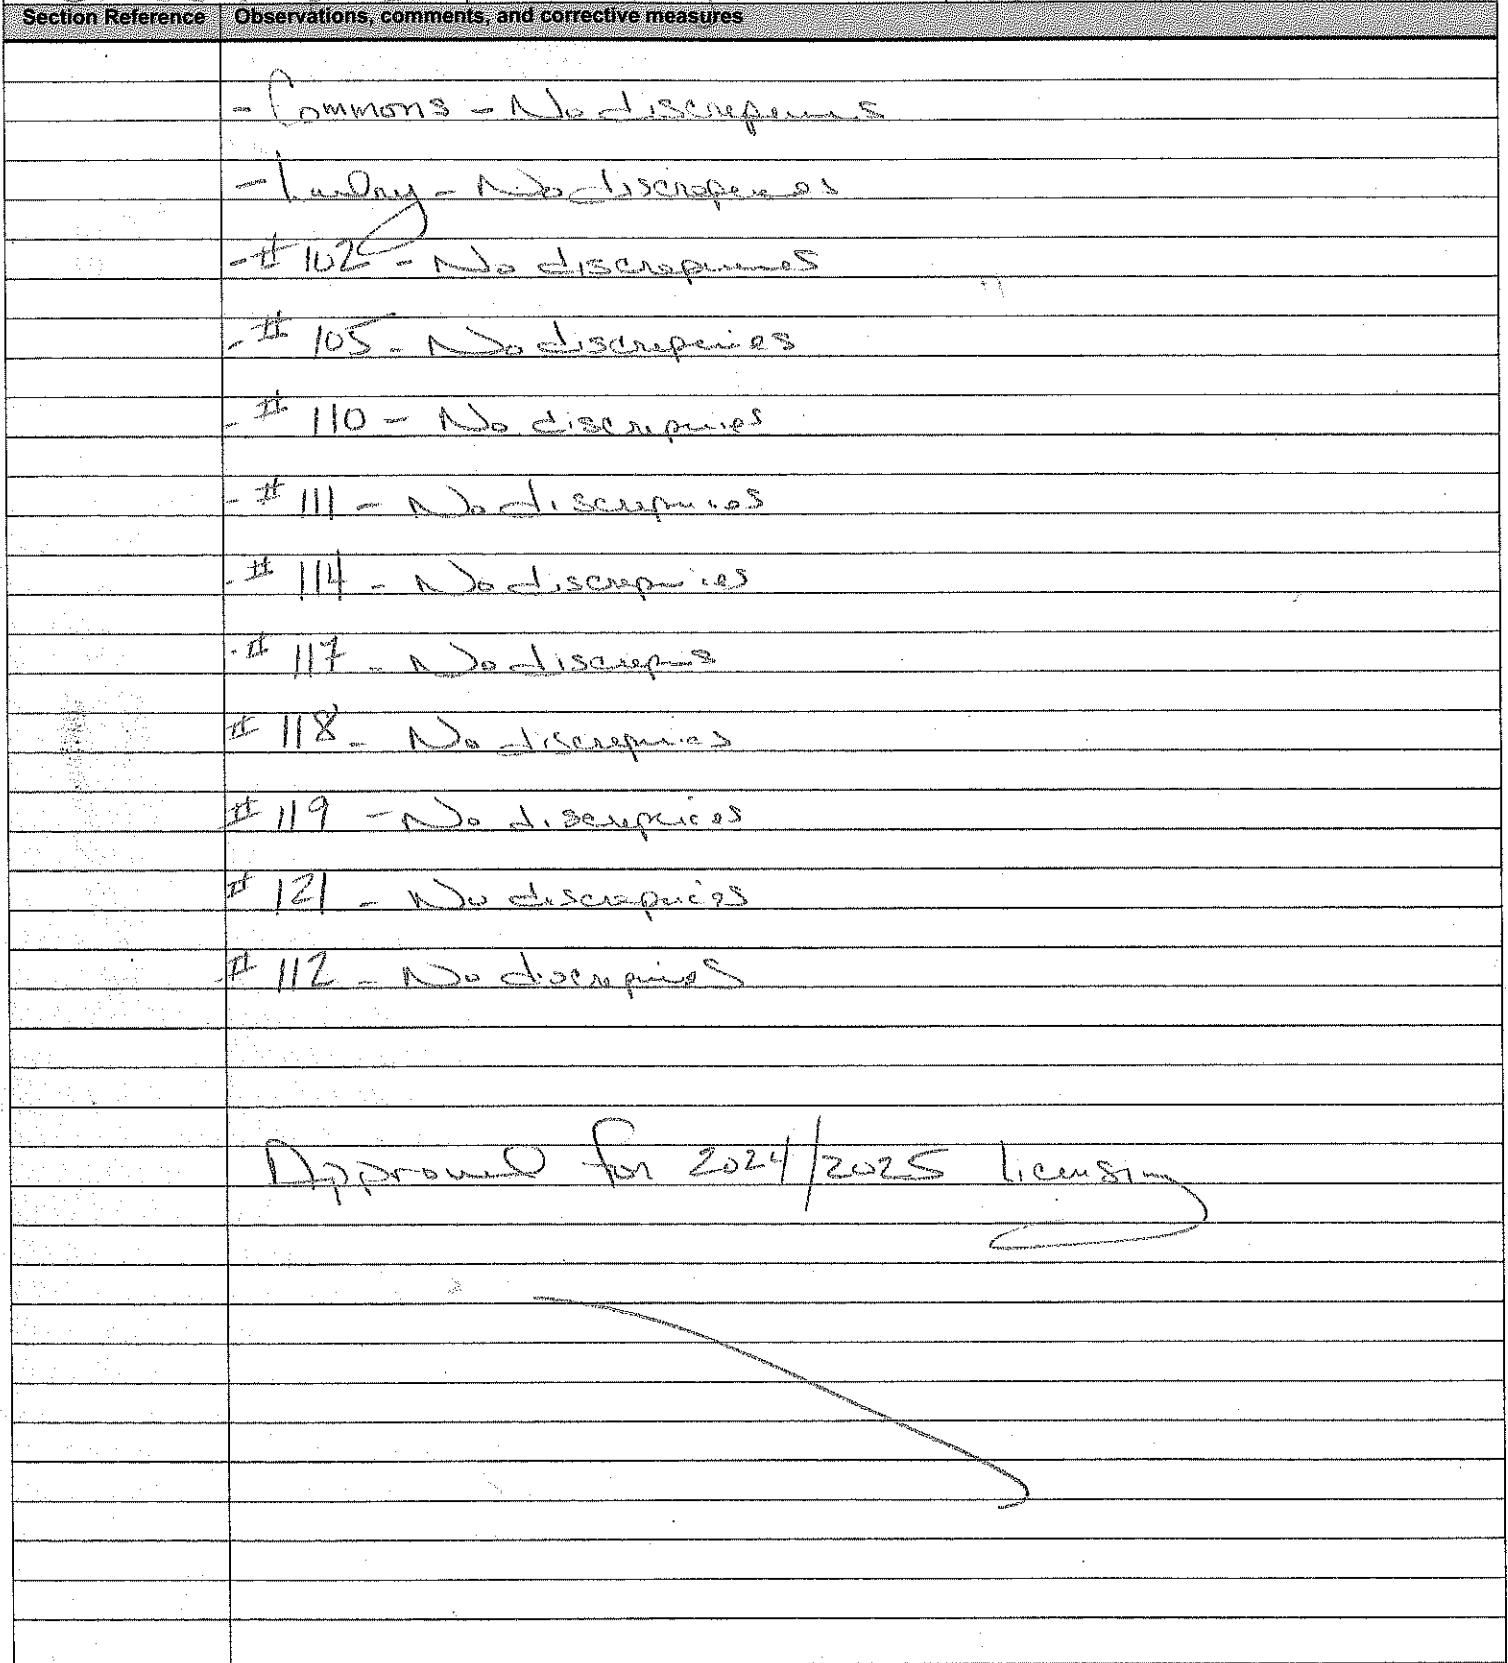 Section Reference Observations, comments, and corrective measures
- Commons - No discrepencies
- Laundry - No discrepencies
- # 102 - No discrepencies
- # 105 - No discrepencies
- # 110 - No discrepencies
- # 111 - No discrepencies
- # 114 - No discrepencies
- # 117 - No discrepencies
# 118 - No discrepencies
# 119 - No discrepencies
# 121 - No discrepencies
# 112 - No discrepencies
Approved for 2024/2025 licensing